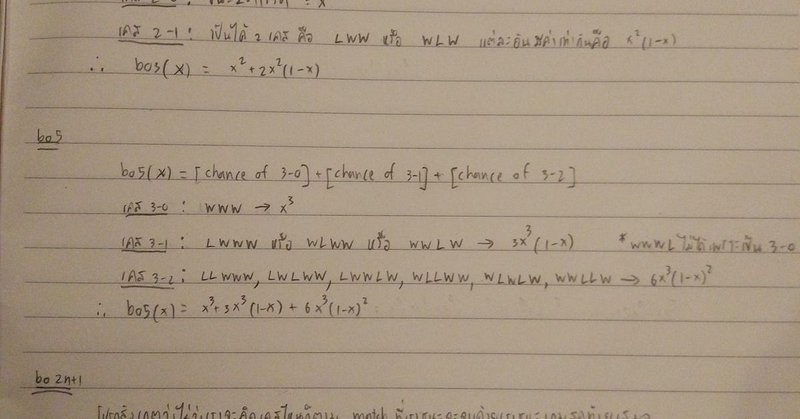 เคส 2-1 : เป็นได้ 2 เคส คือ LWW หรือ WLW แต่ละอันมีค่าเท่ากันคือ x²(1-x)
∴ bo3(x) = x²+2x²(1-x)
bo5
bo5(x) = [chance of 3-0] + [chance of 3-1] + [chance of 3-2]
เคส 3-0 : WWW → x³
เคส 3-1 : LWWW หรือ WLWW หรือ WWLW → 3x³(1-x) *WWWL ไม่ได้เพราะเป็น 3-0
เคส 3-2 : LLWWW, LWLWW, LWWLW, WLLWW, WLWLW, WWLLW → 6x³(1-x)²
∴ bo5(x) = x³+3x³(1-x) + 6x³(1-x)²
bo 2n+1